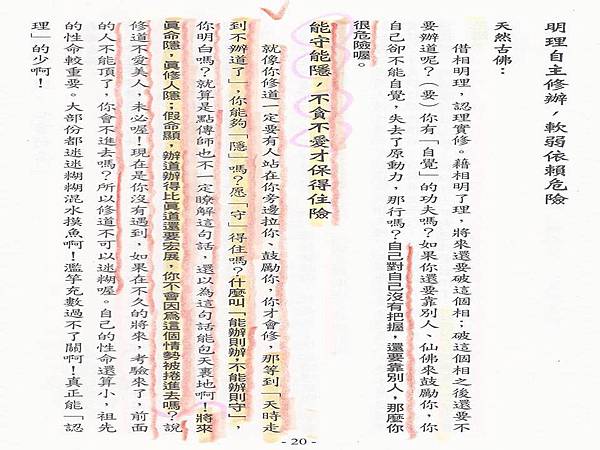 明理自主修辦，軟弱依賴危險
天然古佛：
借相明理，認理實修。藉相明了理，將來還要破這個相；破這個相之後還要不
要辦道呢？（要）你有「自覺」的功夫嗎？如果你還要靠別人、仙佛來鼓勵你，你
自己卻不能自覺，失去了原動力，那行嗎？自己對自己沒有把握，還要靠別人，那麼你
很危險喔。
能守能隱，不貪不愛才保得住險
就像你修道一定要有人站在你旁邊拉你、鼓勵你，你才會修，那等到「天時走
到不辦道了」，你能夠「隱」嗎？愿「守」得住嗎？什麼叫「能辦則辦，不能辦則守」，
你明白嗎？就算是點傳師也不一定瞭解這句話，還以為這句話能包天裹地啊！將來
真命隱，真修人隱；假命顯，辦道辦得比真道還要宏展，你不會因為這個情勢被捲進去嗎？說
修道不愛美人，未必喔！現在是你沒有遇到，如果在不久的將來，考驗來了，前面
的人不能頂了，你會不進去嗎？所以修道不可以迷糊喔。自己的性命還算小，祖先
的性命較重要。大部份都迷迷糊糊混水摸魚啊！濫竽充數過不了關啊！真正能「認
理」的少啊！
- 20 -